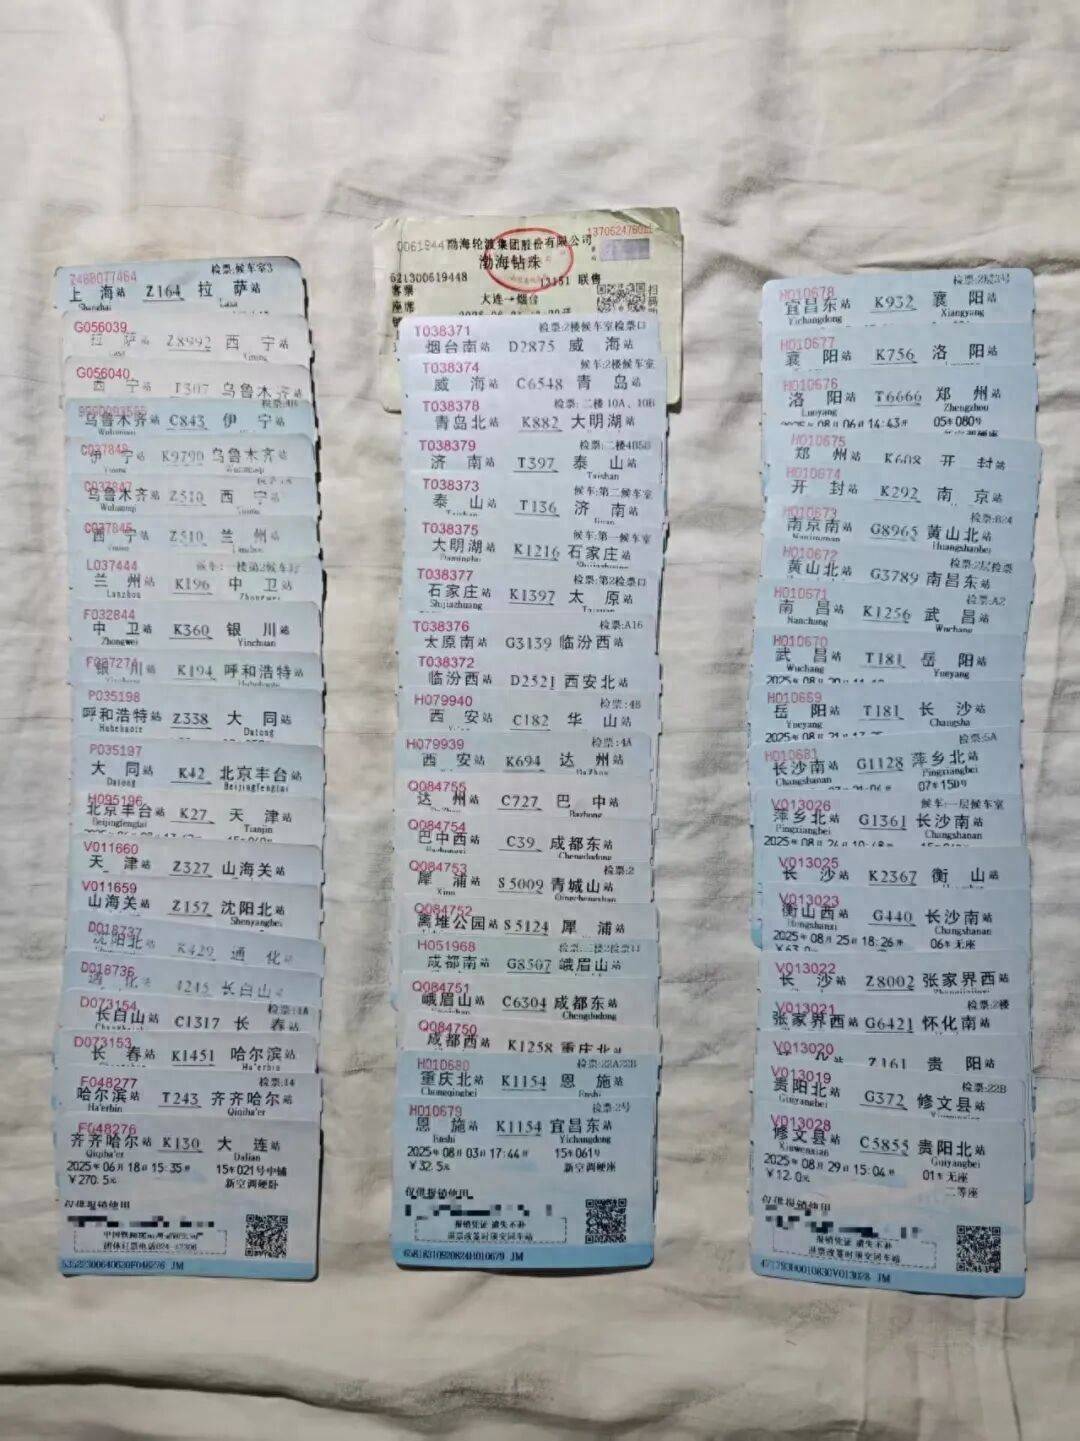 Z488077464 检票:候车室3
上海站 Z164 拉萨站
Shanghai Lasa
G056039
拉萨站 Z8992 西宁站
G056040
西宁站 T307 乌鲁木齐站
乌鲁木齐站 C843 伊宁站
伊宁站 K9790 乌鲁木齐站
C037847
乌鲁木齐站 Z510 西宁站
C037845
西宁站 Z510 兰州站
L037444
兰州站 K196 中卫站
Lanzhou Zhongwei
F032844
中卫站 K360 银川站
Zhongwei Yinchuan
F027274
银川站 K194 呼和浩特站
P035198
呼和浩特站 Z338 大同站
Datong
P035197
大同站 K42 北京丰台站
Datong Beijingfengtai
H095196
北京丰台站 K27 天津站
Beijingfengtai Tianjin
V011660
天津站 Z327 山海关站
V011659
山海关站 Z157 沈阳北站
Shenyangbei
D018737
沈阳北站 K429 通化站
D018736
通化站 4245 长白山站
D073154
长白山站 C1317 长春站
D073153
长春站 K1451 哈尔滨站
Ha'erbin
F048277 检票:14
哈尔滨站 T243 齐齐哈尔站
Ha'erbin Qiqiha'er
F048276
齐齐哈尔站 K130 大连站
Qiqiha'er Dalian
2025年06月18日15:35开 15车021号中铺
￥270.5元 新空调硬卧
仅供报销使用
JM
渤海轮渡集团股份有限公司
渤海钻珠
621300619448 联售
客票
大连→烟台
座席
T038371 检票:2楼候车室检票口
烟台南站 D2875 威海站
T038374 候车:2楼候车室
威海站 C6548 青岛站
T038378 检票:二楼10A、10B
青岛北站 K882 大明湖站
T038379 检票:二楼4B5B
济南站 T397 泰山站
Taishan
T038373 候车:第二候车室
泰山站 T136 济南站
T038375 候车:第一候车室
大明湖站 K1216 石家庄站
T038377 检票:第2检票口
石家庄站 K1397 太原站
Shijiazhuang
T038376 检票:A16
太原南站 G3139 临汾西站
T038372
临汾西站 D2521 西安北站
H079940 检票:4B
西安站 C182 华山站
H079939 检票:4A
西安站 K694 达州站
Q084755
达州站 C727 巴中站
Bazhong
Q084754
巴中西站 C39 成都东站
Q084753 检票:2
犀浦站 S5009 青城山站
Q084752
离堆公园站 S5124 犀浦站
H051968
成都南站 G8507 峨眉山站
Q084751
峨眉山站 C6304 成都东站
Q084750
成都西站 K1258 重庆北站
H010680 检票:22A22B
重庆北站 K1154 恩施站
Chongqingbei Enshi
H010679 检票:2号
恩施站 K1154 宜昌东站
Enshi Yichangdong
2025年08月03日17:44开 15车061号
￥32.5元 新空调硬座
仅供报销使用
报销凭证 遗失不补
退票改签时须交回车站
JM
H010678
宜昌东站 K932 襄阳站
Yichangdong Xiangyang
H010677
襄阳站 K756 洛阳站
H010676
洛阳站 T6666 郑州站
Luoyang Zhengzhou
2025年08月06日14:43开 05车080号
H010675
郑州站 K608 开封站
H010674
开封站 K292 南京站
H010673 检票:B24
南京南站 G8965 黄山北站
Huangshanbei
H010672 检票:2层检票
黄山北站 G3789 南昌东站
H010671 检票:A2
南昌站 K1256 武昌站
Nanchang Wuchang
H010670
武昌站 T181 岳阳站
Wuchang Yueyang
H010669
岳阳站 T181 长沙站
Yueyang Changsha
H010681
长沙南站 G1128 萍乡北站
Pingxiangbei
V013026 候车:一层候车室
萍乡北站 G1361 长沙南站
Pingxiangbei Changshanan
V013025
长沙站 K2367 衡山站
V013023
衡山西站 G440 长沙南站
Hengshanxi Changshanan
2025年08月25日18:26开 06车无座
V013022
长沙站 Z8002 张家界西站
V013021 检票:2楼
张家界西站 G6421 怀化南站
V013020
Z161 贵阳站
V013019 检票:22B
贵阳北站 G372 修文县站
Guiyangbei
V013028
修文县站 C5855 贵阳北站
Xiuwenxian Guiyangbei
2025年08月29日15:04开 01车无座
￥12.0元 二等座
仅供报销使用
报销凭证 遗失不补
退票改签时须交回车站
JM